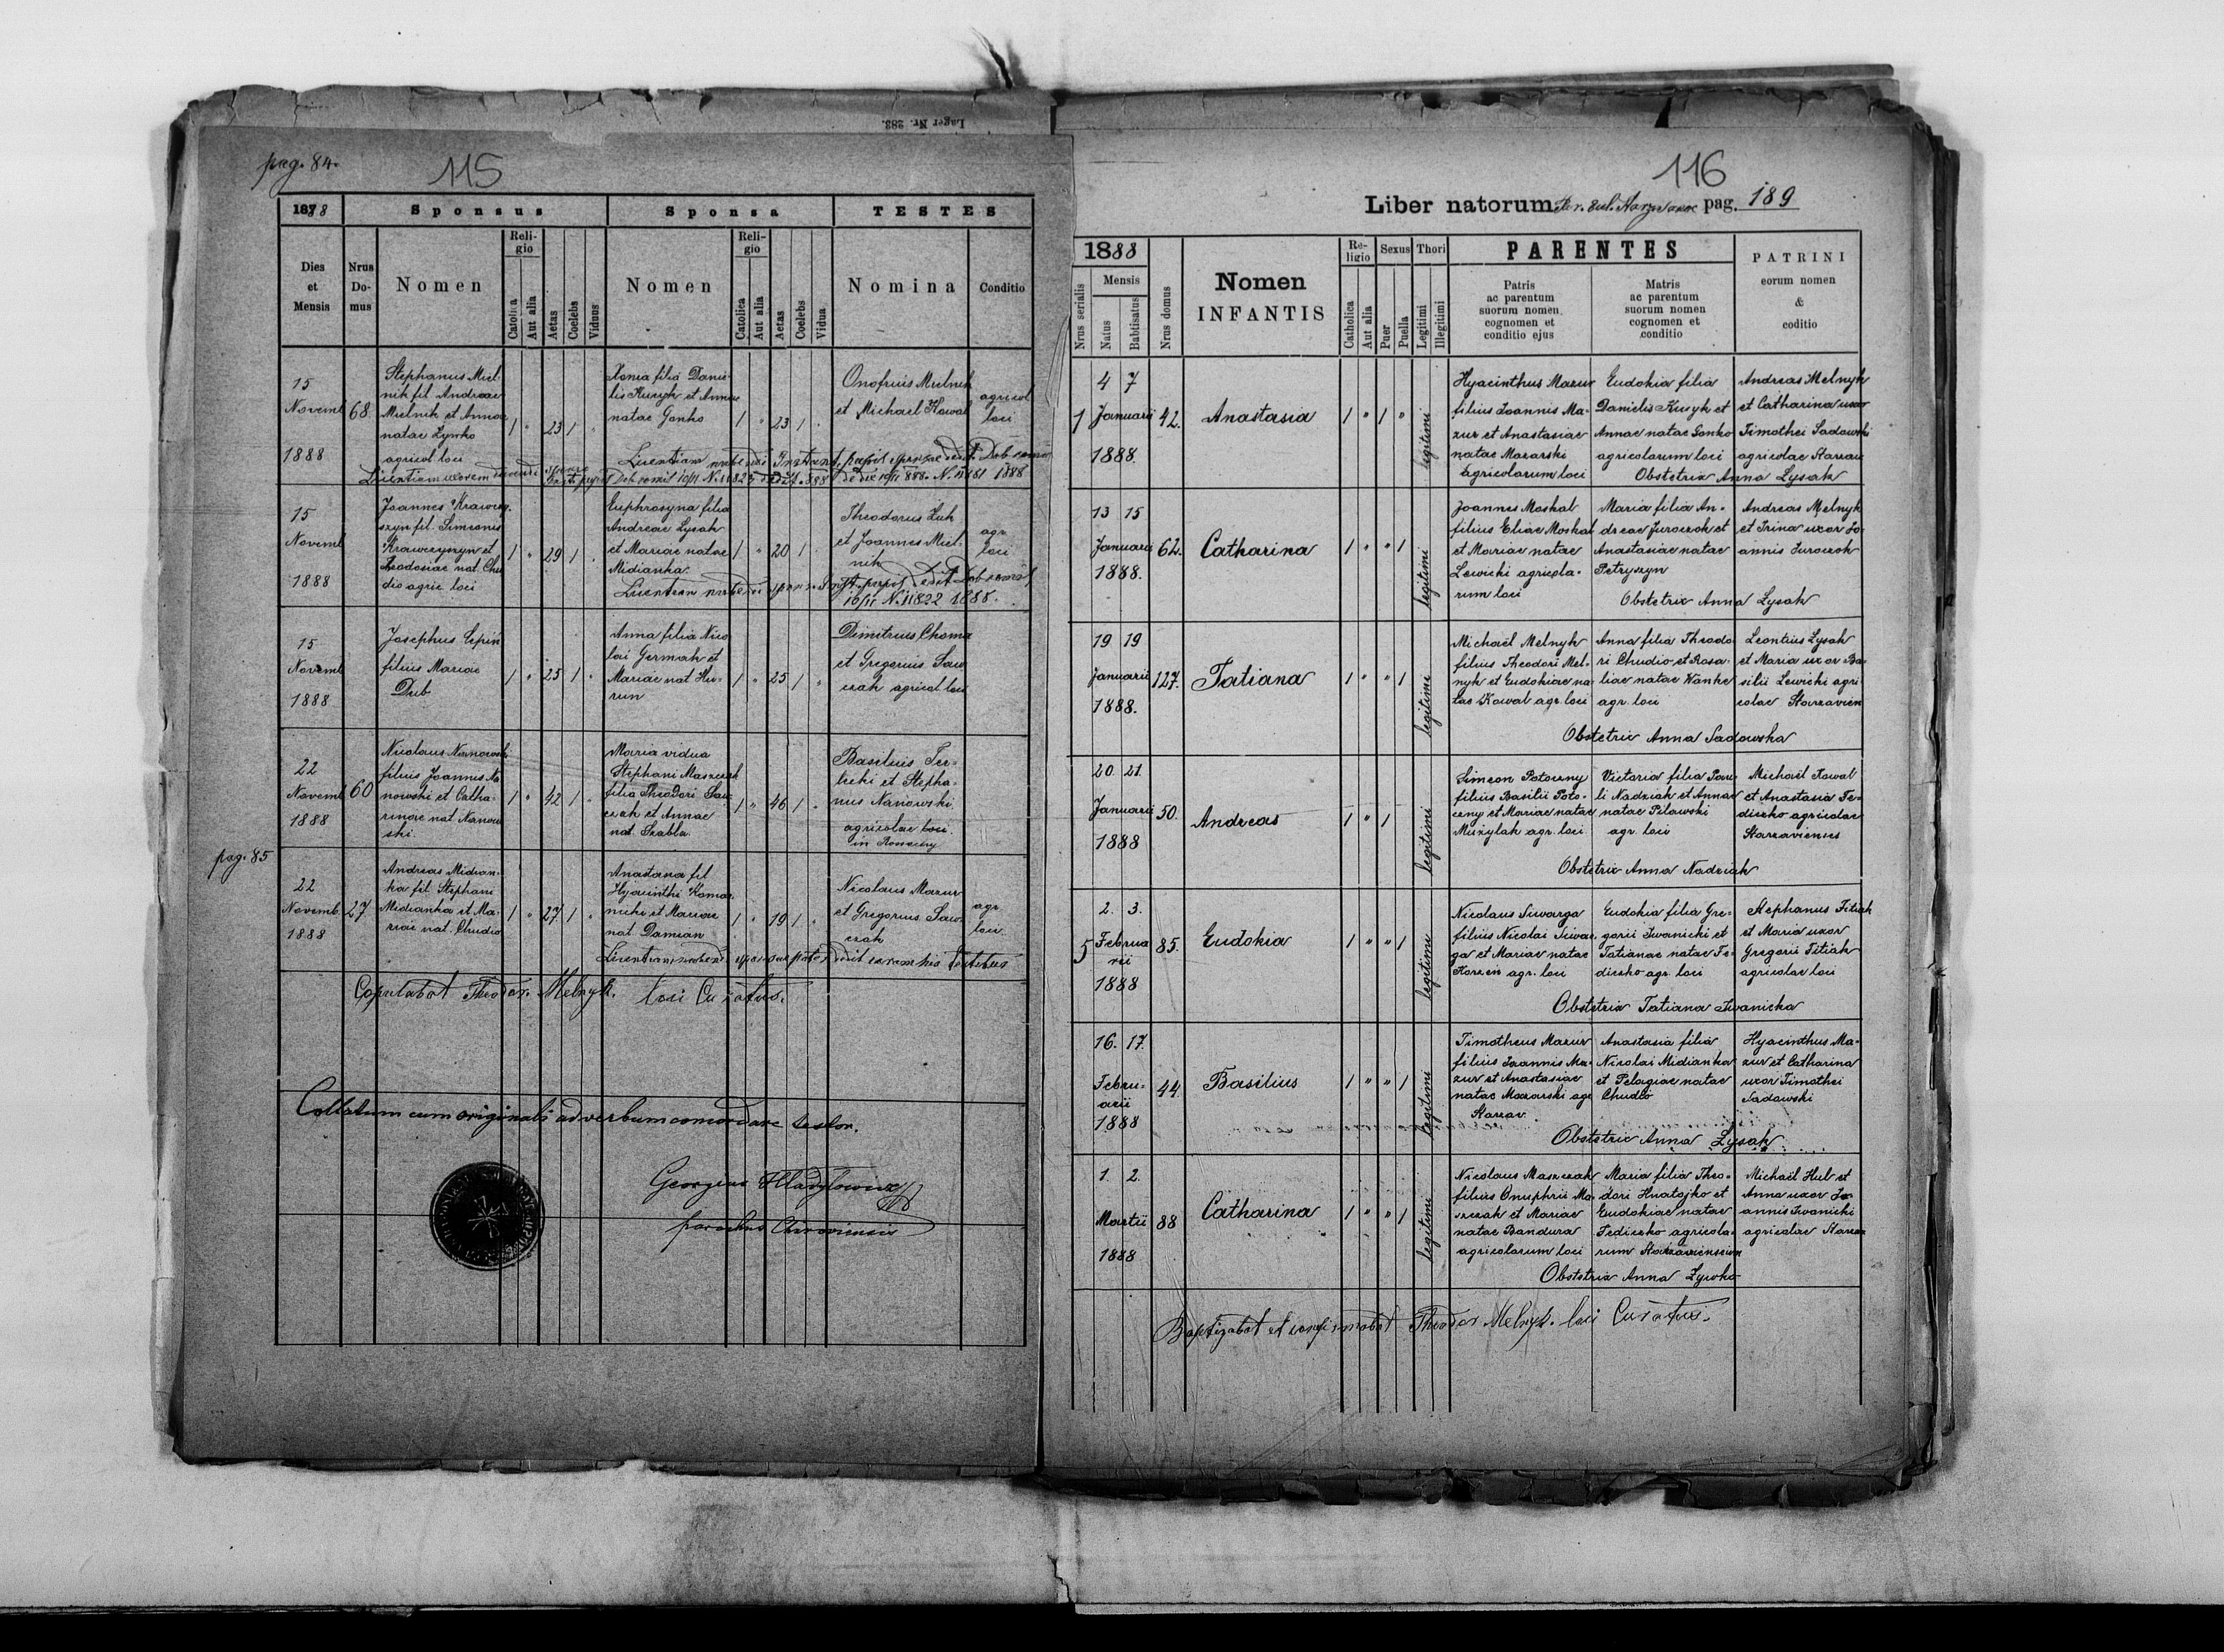 Lager Nr. 283.
pag. 84.
115
1888
Sponsus
Sponsa
TESTES
Dies et Mensis
Nrus Do-mus
Nomen
Reli-gio
Catolica
Aut alia
Aetas
Coelebs
Viduus
Nomen
Reli-gio
Catolica
Aut alia
Aetas
Coelebs
Vidua
Nomina
Conditio
15
Novemb
1888
68
Stephanus Miel-
nik fil Andreae
Mielnik et Annae
natae Zywko
agricol loci
1 " 23 1 "
Xenia filia Danie-
lis Kuzyk et Annae
natae Gonko
1 " 23 1 "
Onofrius Mielnik
et Michael Kowal
agricol
loci
Licentiam nubendi
1888
15
Novemb
1888
Joannes Krawczy-
szyn fil. Simeonis
Krawczyszyn et
Teodosiae nat. Chu
dio agric loci
1 " 29 1 "
Euphrosyna filia
Andreae Lysak
et Mariae natae
Midianka.
1 " 20 1 "
Theodorus Zuk
et Joannes Miel-
nik
agr.
loci
Licentiam nubendi
16/11 N. 11822 1888.
15
Novemb
1888
Josephus Cepin
filius Mariae
Dub
1 " 25 1 "
Anna filia Nico
lai Germak et
Mariae nat Hu-
run
1 " 25 1 "
Dimitrius Choma
et Gregorius Saw
czak agricol loci
22
Novemb
1888
60
Nicolaus Nanowski
filius Joannis Na
nowski et Catha-
rinae nat Nanow
ski.
1 " 42 1 "
Maria vidua
Stephani Maszczak
filia Theodori Saw
czak et Annae
nat. Szabla.
1 " 46 1 "
Basilius Ter-
lecki et Stepha-
nus Nanowski
agricolae loci.
pag. 85
22
Novemb.
1888
27
Andreas Midian-
ka fil Stephani
Midianka et Ma-
riae nat. Chudio
1 " 27 1 "
Anastasia fil
Hyacinthi Komar
nicki et Mariae
nat. Damian
1 " 19 1 "
Nicolaus Mazur
et Gregorius Saw-
czak
agr
loci.
Licentiam nubendi sponsae pater dedit coram his testibus
Copulabat Theodor. Melnyk. loci Curatus.
Collatum cum originali ad verbum concordare testor.
Georgius Hladylowicz
parochus Chiroviensis
116
Liber natorum
pag. 189
1888
Nrus serialis
Mensis
Natus
Babtisatus
Nrus domus
Nomen
INFANTIS
Re-ligio
Catholica
Aut alia
Sexus
Puer
Puella
Thori
Legitimi
Illegitimi
PARENTES
Patris
ac parentum
suorum nomen
cognomen et
conditio ejus
Matris
ac parentum
suorum nomen
cognomen et
conditio
PATRINI
eorum nomen
&
coditio
1
4 7
Januarii
1888.
42.
Anastasia
1 " 1 "
legitimi
Hyacinthus Mazur
filius Joannis Ma-
zur et Anastasiae
natae Mazarski
agricolarum loci
Eudokia filia
Danielis Kuzyk et
Annae natae Gonko
agricolarum loci
Andreas Melnyk
et Catharina uxor
Timothei Sadowski
agricolae Starzav
Obstetrix Anna Lysak
13 15
Januarii
1888.
62.
Catharina
1 " " 1
legitimi
Joannes Moskal
filius Eliae Moskal
et Mariae natae
Lewicki agricola-
rum loci
Maria filia An-
dreae Juroczok et
Anastasiae natae
Petryszyn
Andreas Melnyk
et Irina uxor Jo-
annis Juroczok
Obstetrix Anna Lysak
19 19
Januarii
1888.
127.
Tatiana
1 " " 1
legitimi
Michaël Melnyk
filius Theodori Mel-
nyk et Eudokiae na-
tae Kowal agr. loci
Anna filia Theodo
ri Chudio et Rosa-
liae natae Wanke
agr. loci
Leontius Lysak
et Maria uxor Ba-
silii Lewicki agri
colae Starzavien
Obstetrix Anna Sadowska
20 21.
Januarii
1888
50.
Andreas
1 " 1
legitimi
Simeon Potoczny
filius Basilii Poto-
czny et Mariae natae
Muzylak agr. loci
Victoria filia Pau-
li Nadziak et Annae
natae Pilawski
agr. loci
Michaël Kowal
et Anastasia Fe-
diczko agricolae
Starzavienses
Obstetrix Anna Nadziak
5
2. 3.
Februa
rii
1888
85.
Eudokia
1 " " 1
legitimi
Nicolaus Siwarga
filius Nicolai Siwar
ga et Mariae natae
Korzen agr. loci
Eudokia filia Gre-
gorii Iwanicki et
Tatianae natae Fe-
diczko agr. loci
Stephanus Titiak
et Maria uxor
Gregorii Titiak
agricolae loci
Obstetrix Tatiana Iwanicka
16. 17.
Febru-
arii
1888
44.
Basilius
1 " " 1
legitimi
Timotheus Mazur
filius Joannis Ma-
zur et Anastasiae
natae Mazarski agr
Starzav.
Anastasia filia
Nicolai Midianka
et Pelagiae natae
Chudio
Hyacinthus Ma-
zur et Catharina
uxor Timothei
Sadowski
Obstetrix Anna Lysak
1. 2.
Martii
1888
88
Catharina
1 " " 1
legitimi
Nicolaus Maszczak
filius Onuphrii Ma-
szczak et Mariae
natae Bandura
agricolarum loci
Maria filia Theo-
dori Hnatojko et
Eudokiae natae
Fediczko agricola-
rum Starzaviensium
Michaël Hul et
Anna uxor Jo-
annis Iwanicki
agricolae Starzav
Obstetrix Anna Zywko
Baptizabat et confirmabat Theodor Melnyk. loci Curatus.